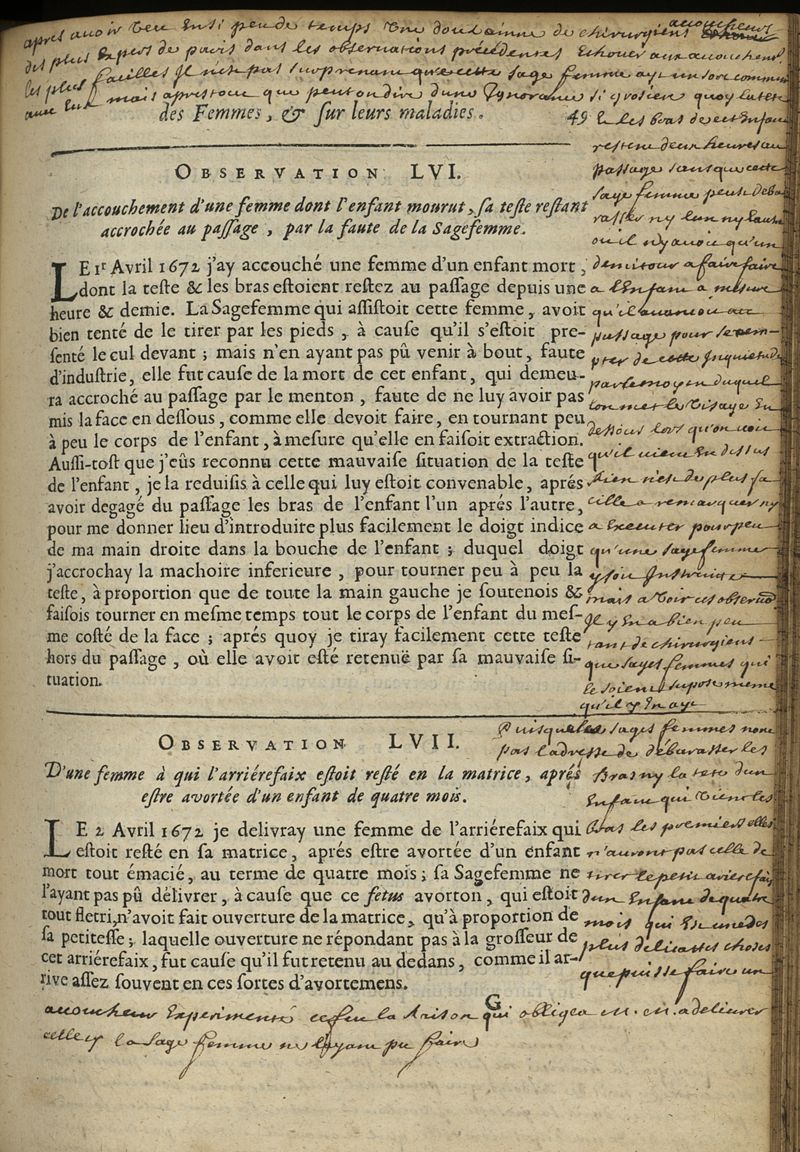 apres avoir veu en si peu de temps une douzaine de chirurgiens accoucheurs
des plus expers de paris dans les observations précédentes Echouer aux accouchemens
les plus faciles Il n'est pas surprenant que cette sage femme aye un sort commun
avec eux mais apres tout que peut on dire d'une Ignorance si grosiere quoy la tete
des Femmes, & ſur leurs maladies. 49
& les bras de cet enfant
restent deux heures au
passage sans que cette
sage femme peut deba
rasser ny l'un ny l'autre
ou il n'y avoit qu'un
demi tour a faire faire
a l'Enfant a mesure
qu'il avancoit au
passage pour
de cette
par le moyen duquel
on met le visage En
dessous lors qu'on voit
qu'il vient En dessus
Rien n'est de plus fa
cille a remarquer ny
a Executer pour peu
qu'une sage femme
y soit Instruite
mais a voir ces observaõ
Il y En a bien peu
tant de chirurgiens
que sages femmes qui
le soient supose meme
qu'il y En aye
OBSERVATION LVI.
De l'accouchement d'une femme dont l'enfant mourut, ſa teſte reſtant
accrochée au paſſage, par la faute de la Sagefemme.
LE 1r Avril 1672 j'ay accouché une femme d'un enfant mort,
dont la teſte & les bras eſtoient reſtez au paſſage depuis une
heure & demie. La Sagefemme qui aſſiſtoit cette femme, avoit
bien tenté de le tirer par les pieds, à cauſe qu'il s'eſtoit pre-
ſenté le cul devant; mais n'en ayant pas pû venir à bout, faute
d'induſtrie, elle fut cauſe de la mort de cet enfant, qui demeu-
ra accroché au paſſage par le menton, faute de ne luy avoir pas
mis la face en deſſous, comme elle devoit faire, en tournant peu
à peu le corps de l'enfant, à meſure qu'elle en faiſoit extraction.
Auſſi-toſt que j'eûs reconnu cette mauvaiſe ſituation de la teſte
de l'enfant, je la reduiſis à celle qui luy eſtoit convenable, aprés
avoir degagé du paſſage les bras de l'enfant l'un aprés l'autre,
pour me donner lieu d'introduire plus facilement le doigt indice
de ma main droite dans la bouche de l'enfant; duquel doigt
j'accrochay la machoire inferieure, pour tourner peu à peu la
teſte, à proportion que de toute la main gauche je ſoutenois &
faiſois tourner en meſme temps tout le corps de l'enfant du meſ-
me coſté de la face; aprés quoy je tiray facilement cette teſte
hors du paſſage, où elle avoit eſté retenuë par ſa mauvaiſe ſi-
tuation.
OBSERVATION LVII.
D'une femme à qui l'arriérefaix eſtoit reſté en la matrice, aprés
eſtre avortée d'un enfant de quatre mois.
LE 2 Avril 1672 je delivray une femme de l'arriérefaix qui
eſtoit reſté en ſa matrice, aprés eſtre avortée d'un enfant
mort tout émacié, au terme de quatre mois; ſa Sagefemme ne
l'ayant pas pû délivrer, à cauſe que ce fetus avorton, qui eſtoit
tout fletri, n'avoit fait ouverture de la matrice, qu'à proportion de
ſa petiteſſe; laquelle ouverture ne répondant pas à la groſſeur de
cet arriérefaix, fut cauſe qu'il fut retenu au dedans, comme il ar-
rive aſſez ſouvent en ces ſortes d'avortemens.
G
Puisque les sages femmes n'ont
pas l'adresse de debarasser les
Bras ny la tete d'un
Enfant qui vient les
bras les premiers elles
n'auront pas celle de
tirer le petit arierefaix
d'un Enfant de quatre
mois qui Est une des
plus delicattes choses
que puisse faire un
accoucheur Experimenté ce fut la raison qui obligea m. m. a delivrer
celle cy la sage femme ne l'ayant pu faire